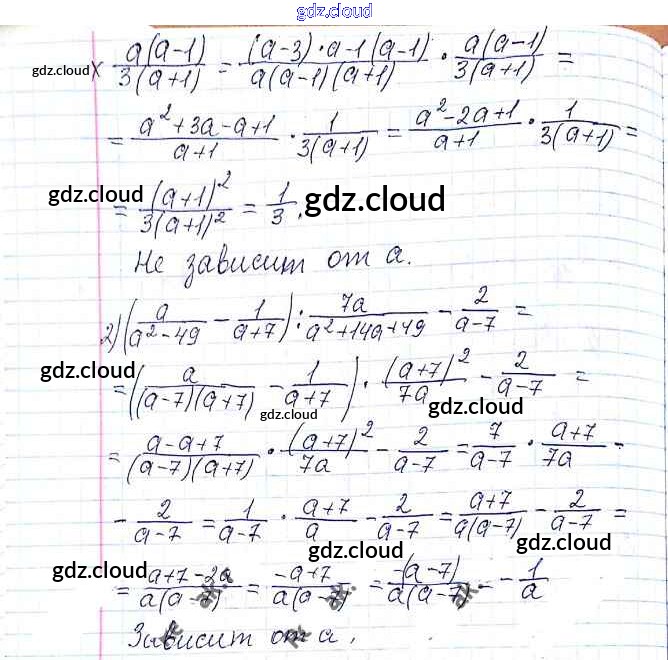 gdz.cloud
gdz.cloud x a(a-1)/3(a+1) = (a-3)·a-1(a-1)/a(a-1)(a+1) · a(a-1)/3(a+1) =
= a²+3a-a+1/a+1 · 1/3(a+1) = a²-2a+1/a+1 · 1/3(a+1) =
gdz.cloud
= (a+1)²/3(a+1)² = 1/3. gdz.cloud
Не зависит от а.
gdz.cloud
2) (a/a²-49 - 1/a+7) : 7a/a²+14a+49 - 2/a-7 =
gdz.cloud
= (a/(a-7)(a+7) - 1/a+7) · (a+7)²/7a - 2/a-7 =
gdz.cloud gdz.cloud
= a-a+7/(a-7)(a+7) · (a+7)²/7a - 2/a-7 = 7/a-7 · a+7/7a -
gdz.cloud
- 2/a-7 = 1/a-7 · a+7/a - 2/a-7 = a+7/a(a-7) - 2/a-7 =
gdz.cloud gdz.cloud
gdz.cloud
= a+7-2a/a(a-7) = -a+7/a(a-7) = -(a-7)/a(a-7) = -1/a
Зависит от а.